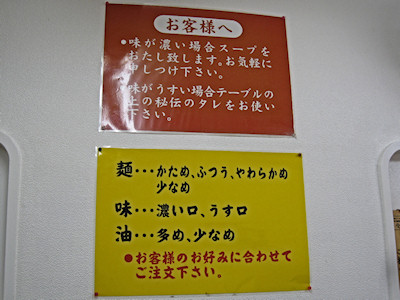 お客様へ
●味が濃い場合スープを
おたし致します。お気軽に
申しつけ下さい。
●味がうすい場合テーブルの
上の秘伝のタレをお使い
下さい。
麺・・・かため、ふつう、やわらかめ
少なめ
味・・・濃い口、うす口
油・・・多め、少なめ
●お客様のお好みに合わせて
ご注文下さい。